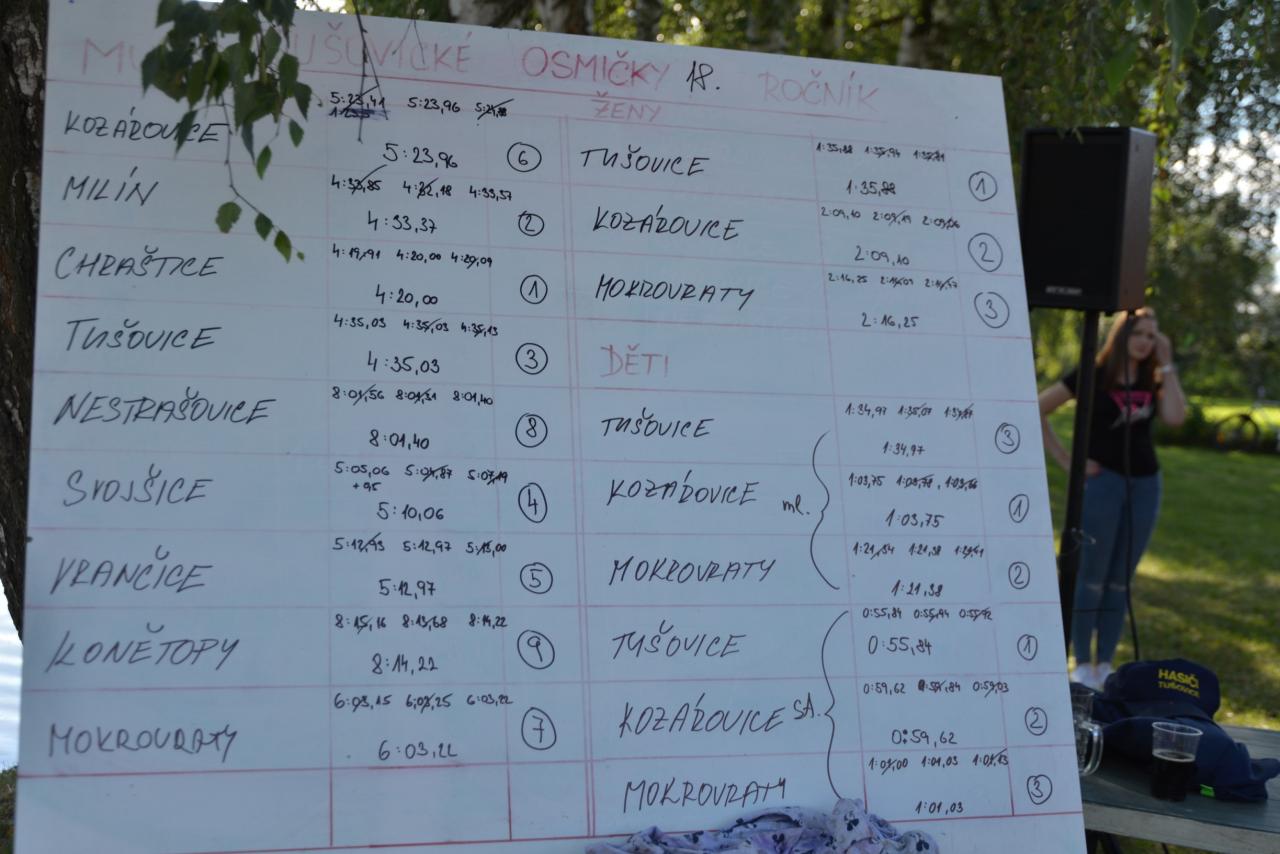 TUŠOVICKÉ OSMIČKY 18. ROČNÍK
ŽENY
KOZÁROVICE
5:23,41 5:23,96
5:23,96 6
MILÍN
4:32,18 4:33,37
4:33,37 2
CHRAŠTICE
4:19,91 4:20,00 4:20,09
4:20,00 1
TUŠOVICE
4:35,03 4:35,03 4:35,13
4:35,03 3
NESTRAŠOVICE
8:01,56 8:01,40
8:01,40 8
SVOJŠICE
5:05,06 5:04,87 5:07,19
5:10,06 4
VRANČICE
5:12,93 5:12,97 5:13,00
5:12,97 5
KONĚTOPY
8:15,16 8:13,68 8:14,22
8:14,22 9
MOKROVRATY
6:03,15 6:03,25 6:03,22
6:03,22 7
TUŠOVICE
1:35,88 1:35,94
1:35,88 1
KOZÁROVICE
2:09,10 2:09,19 2:09,06
2:09,10 2
MOKROVRATY
2:16,25
2:16,25 3
DĚTI
TUŠOVICE
1:34,97 1:35,07
1:34,97 3
KOZÁROVICE ml.
1:03,75
1:03,75 1
MOKROVRATY
1:21,34 1:21,38 1:21,41
1:21,38 2
TUŠOVICE
0:55,84 0:55,94 0:55,72
0:55,84 1
KOZÁROVICE ST.
0:59,62 0:59,03
0:59,62 2
MOKROVRATY
1:01,00 1:01,03 1:01,13
1:01,03 3
HASIČI
TUŠOVICE